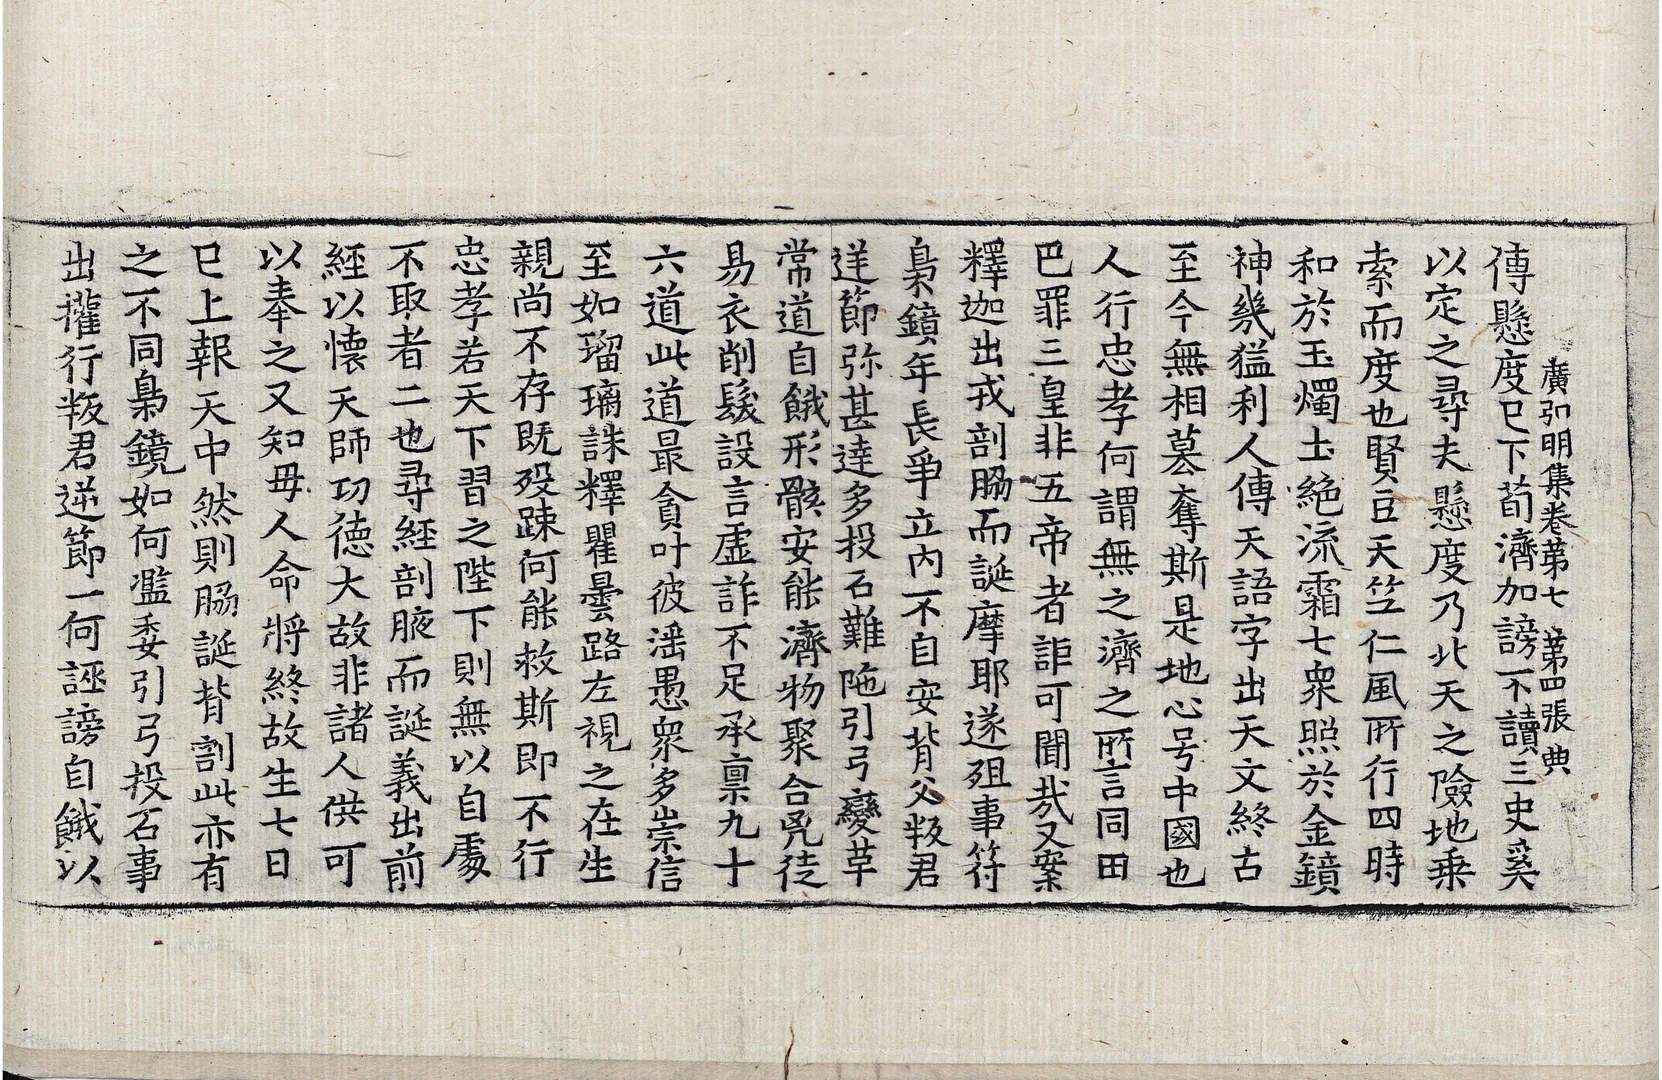 廣弘明集卷第七 第四張 典
傳懸度已下荀濟加謗不讀三史奚
以定之尋夫懸度乃北天之險地乗
索而度也賢豆天竺仁風所行四時
和於玉燭土絶流霜七衆照於金鏡
神幾猛利人傳天語字出天文終古
至今無相墓奪斯是地心号中國也
人行忠孝何謂無之濟之所言同田
巴罪三皇非五帝者詎可聞哉又案
釋迦出戎剖脇而誕摩耶遂殂事符
梟鏡年長爭立内不自安背父叛君
逆節弥甚達多投石難陁引弓變革
常道自餓形骸安能濟物聚合兇徒
易衣削髮設言虚詐不足承禀九十
六道此道最貪叶彼滛愚衆多崇信
至如瑠璃誅釋瞿曇路左視之在生
親尚不存既殁踈何能救斯即不行
忠孝若天下習之陛下則無以自處
不取者二也尋經剖腋而誕義出前
經以懐天師功德大故非諸人供可
以奉之又知毋人命將終故生七日
已上報天中然則脇誕背割此亦有
之不同梟鏡如何濫委引弓投石事
出權行叛君逆節一何誣謗自餓以